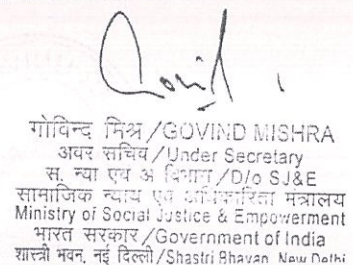 Govind
गोविन्द मिश्र/GOVIND MISHRA
अवर सचिव/Under Secretary
स. न्या एवं अ विभाग/D/o SJ&E
सामाजिक न्याय एवं अधिकारिता मंत्रालय
Ministry of Social Justice & Empowerment
भारत सरकार/Government of India
शास्त्री भवन, नई दिल्ली/Shastri Bhavan, New Delhi